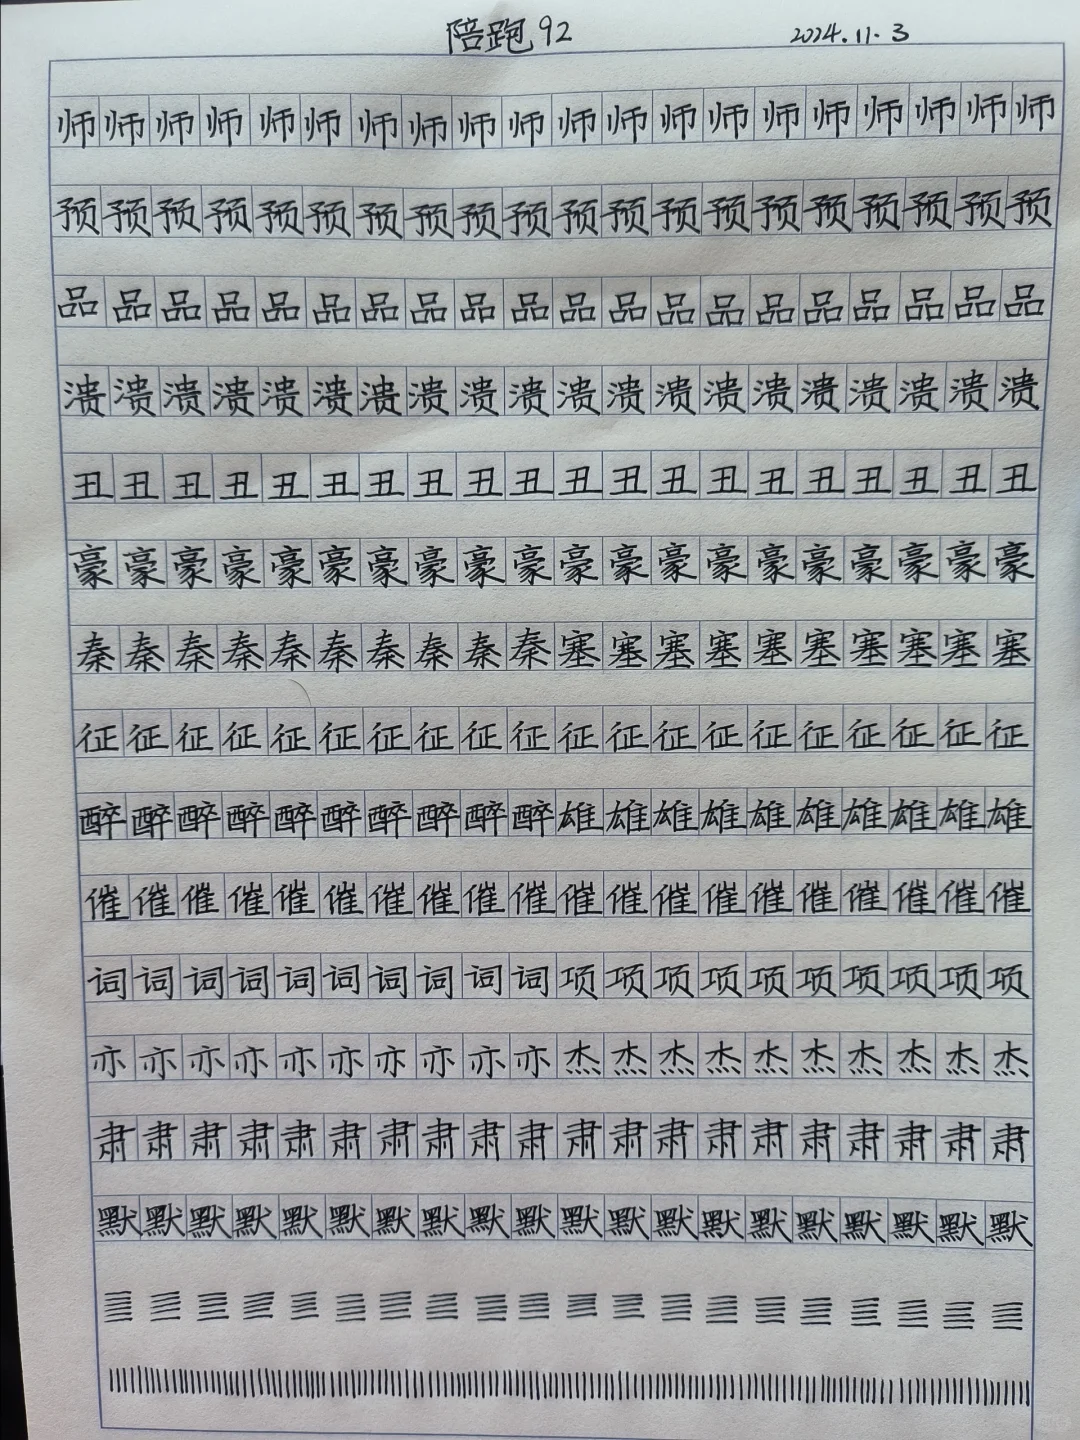 陪跑92 2024.11.3
师师师师师师师师师师师师师师师师师师师师
预预预预预预预预预预预预预预预预预预预预
品品品品品品品品品品品品品品品品品品品品
溃溃溃溃溃溃溃溃溃溃溃溃溃溃溃溃溃溃溃溃
丑丑丑丑丑丑丑丑丑丑丑丑丑丑丑丑丑丑丑丑
豪豪豪豪豪豪豪豪豪豪豪豪豪豪豪豪豪豪豪豪
秦秦秦秦秦秦秦秦秦秦塞塞塞塞塞塞塞塞塞塞
征征征征征征征征征征征征征征征征征征征征
醉醉醉醉醉醉醉醉醉醉雄雄雄雄雄雄雄雄雄雄
催催催催催催催催催催催催催催催催催催催催
词词词词词词词词词词项项项项项项项项项项
亦亦亦亦亦亦亦亦亦亦杰杰杰杰杰杰杰杰杰杰
肃肃肃肃肃肃肃肃肃肃肃肃肃肃肃肃肃肃肃肃
默默默默默默默默默默默默默默默默默默默默